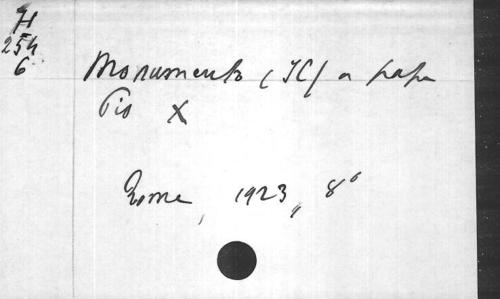 H
254
6
Monumento (IL) a papa
Pio X
Rome, 1923, 8°